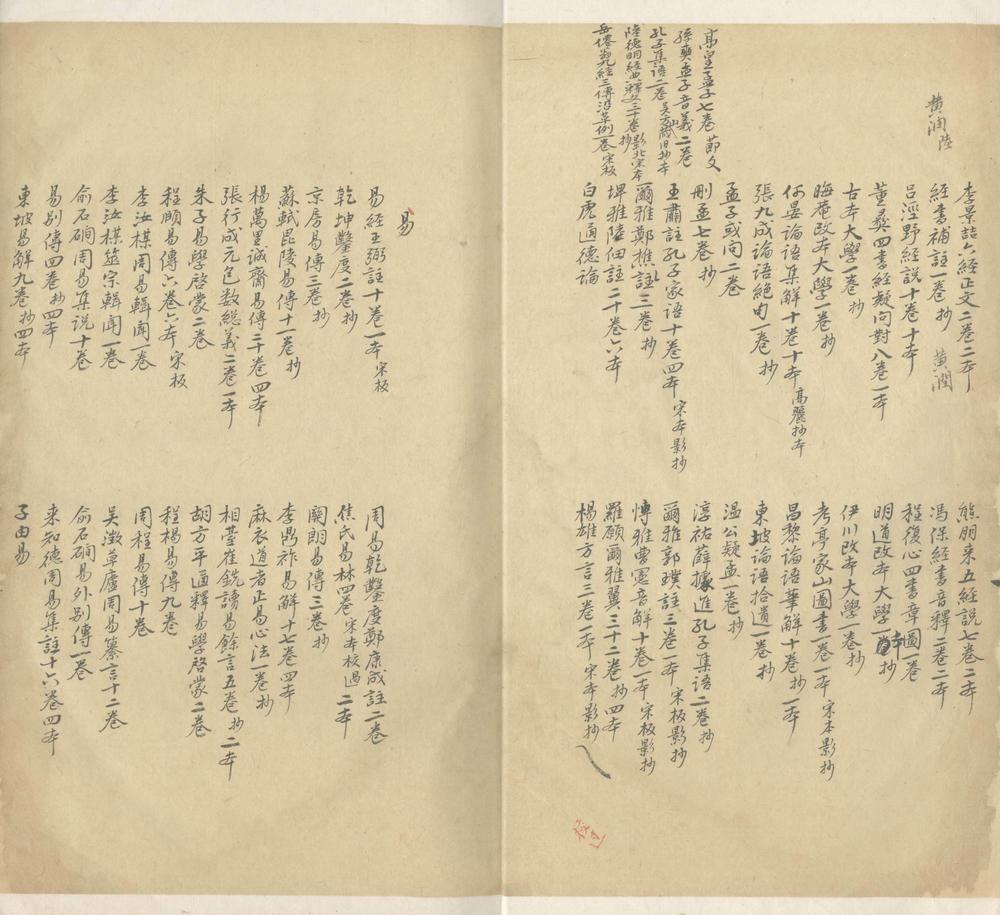 黄潤陸
高皇孟子七卷 節文
孫奭孟子音義二卷
孔子集語二卷 吴方山藏旧抄本
陸德明經典釋文三十卷 影北宋本抄
岳倦翁九經三傳沿革例一卷 宋板
李景喆六經正文二卷二本
經書補註一卷 抄 黄潤
吕涇野經説十卷十本
董彝四書經疑问對八卷一本
古本大學一卷 抄
晦菴改本大學一卷 抄
何晏論語集解十卷十本 高麗抄本
張九成論語絶句一卷 抄
孟子或问二卷
刪孟七卷 抄
王肅註孔子家語十卷四本 宋本影抄
爾雅鄭樵註三卷 抄
埤雅陸佃註二十卷六本
白虎通德論
熊朋来五經説七卷二本
馮保經書音釋一卷二本
程復心四書章圖一卷
明道改本大學一本 抄
伊川改本大學一卷 抄
考亭家山圖書一卷一本 宋本影抄
昌黎論語筆解十卷 抄一本
東坡論語拾遺一卷 抄
温公疑孟一卷 抄
淳祐薛據進孔子集語二卷 抄
爾雅郭璞註三卷一本 宋板影抄
博雅曹憲音解十卷一本 宋板影抄
羅願爾雅翼三十二卷 抄四本
楊雄方言三卷一本 宋本影抄
易
易經王弼註十卷一本 宋板
乾坤鑿度二卷 抄
京房易傳三卷 抄
蘇軾毘陵易傳十一卷 抄
楊萬里誠齋易傳三十卷四本
張行成元包数総義二卷一本
朱子易學啓蒙二卷
程頤易傳六卷六本 宋板
李汝楳周易輯聞一卷
李汝楳筮宗輯聞一卷
俞石磵周易集説十卷
易别傳四卷 抄四本
東坡易解九卷 抄四本
周易乾鑿度鄭康成註二卷
焦氏易林四卷 宋本校過 二本
關朗易傳三卷 抄
李鼎祚易解十七卷四本
麻衣道者正易心法一卷 抄
相臺崔銑讀易餘言五卷 抄二本
胡方平通釋易學啓蒙二卷
程楊易傳九卷
周程易傳十卷
吴澂草廬周易纂言十二卷
俞石磵易外别傳一卷
来知德周易集註十六卷四本
子由易